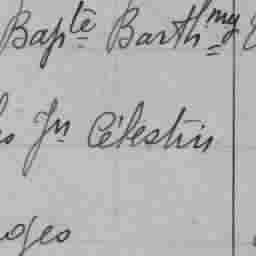 Bapte Barthmy
Jn Célestin
oges